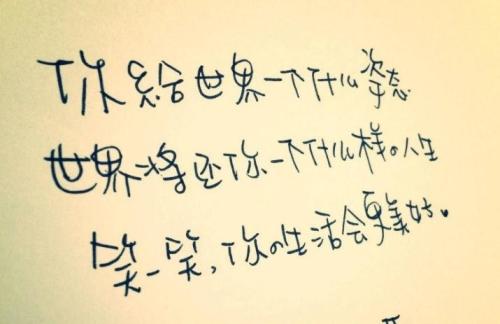 你給世界一个什么姿态
世界将还你一个什么样の人生
笑一笑,你の生活会更美好。